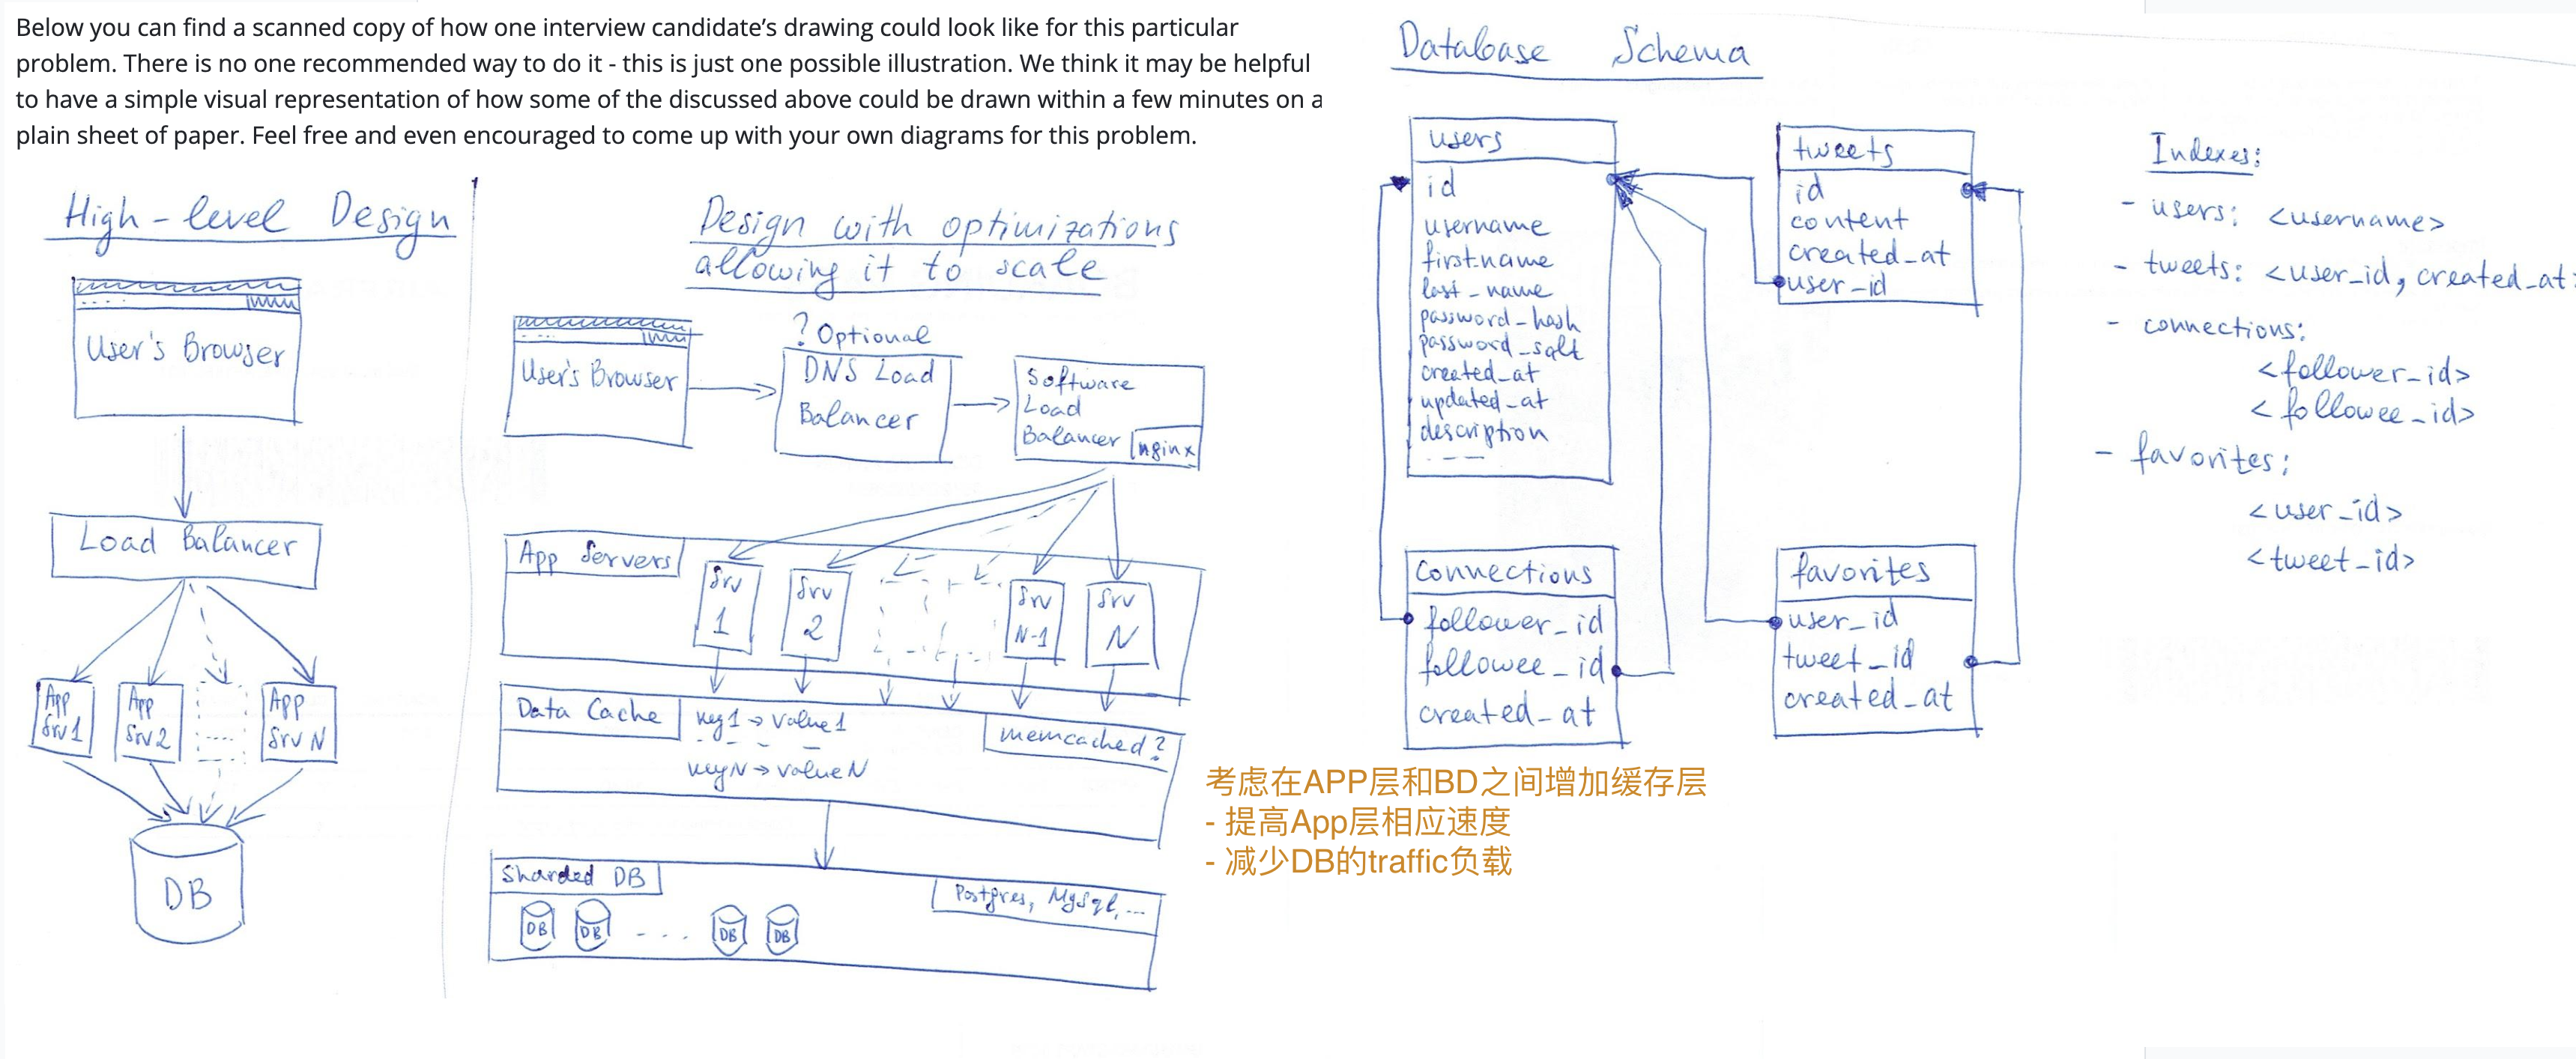 Below you can find a scanned copy of how one interview candidate's drawing could look like for this particular
problem. There is no one recommended way to do it - this is just one possible illustration. We think it may be helpful
to have a simple visual representation of how some of the discussed above could be drawn within a few minutes on a
plain sheet of paper. Feel free and even encouraged to come up with your own diagrams for this problem.
High-level Design
User's Browser
Load Balancer
App Srv 1
App Srv 2
.....
App Srv N
DB
Design with optimizations
allowing it to scale
User's Browser
? Optional
DNS Load
Balancer
Software
Load
Balancer
nginx
App Servers
Srv 1
Srv 2
Srv N-1
Srv N
Data Cache
key1 → value1
keyN → valueN
memcached?
Sharded DB
Postgres, MySql, ...
DB
DB
. . . .
DB
DB
Database Schema
users
id
username
first_name
last_name
password_hash
password_salt
created_at
updated_at
description
tweets
id
content
created_at
user_id
connections
follower_id
followee_id
created_at
favorites
user_id
tweet_id
created_at
Indexes:
- users: <username>
- tweets: <user_id, created_at>
- connections:
<follower_id>
<followee_id>
- favorites:
<user_id>
<tweet_id>
考虑在APP层和BD之间增加缓存层
- 提高App层相应速度
- 减少DB的traffic负载